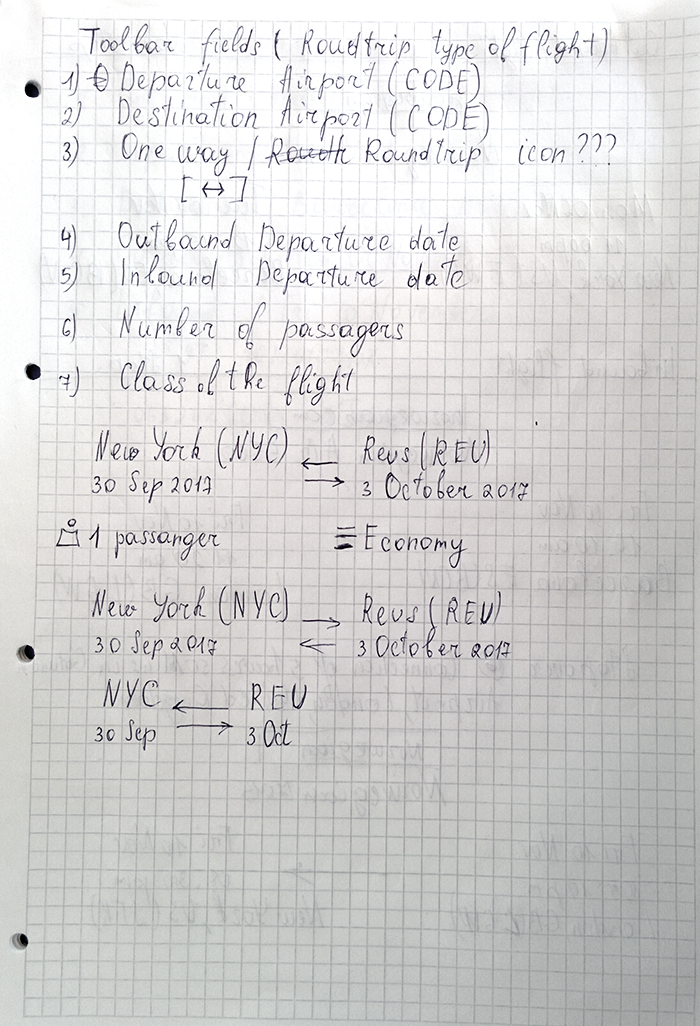 Toolbar fields ( Roudtrip type of flight)
1) Departure Airport (CODE)
2) Destination Airport (CODE)
3) One way / Roundtrip icon ???
[ ↔ ]
4) Outbaund Departure date
5) Inbound Departure date
6) Number of passagers
7) Class of the flight
New York (NYC) ← Revs (REV)
30 Sep 2017 → 3 October 2017
1 passanger Economy
New York (NYC) → Revs (REV)
30 Sep 2017 ← 3 October 2017
NYC ← REV
30 Sep → 3 Oct